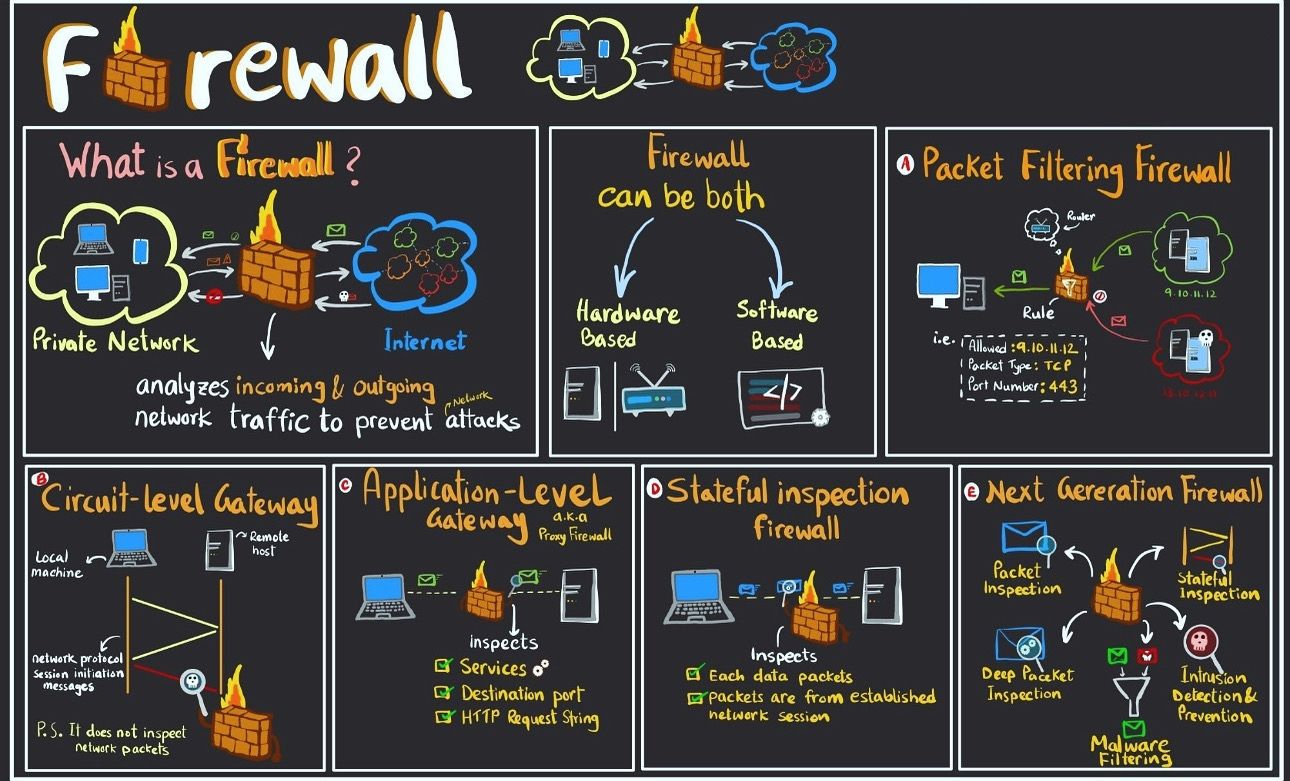 Firewall
What is a Firewall ?
Private Network
Internet
analyzes incoming & outgoing
Network
network traffic to prevent attacks
Firewall
can be both
Hardware
Based
Software
Based
</>
A Packet Filtering Firewall
Router
9.10.11.12
Rule
i.e.
Allowed : 9.10.11.12
Packet Type : TCP
Port Number : 443
B
Circuit-level Gateway
Local
machine
Remote
host
network protocol
session initiation
messages
P.S. It does not inspect
network packets
C Application-Level
Gateway
a.k.a
Proxy Firewall
inspects
Services
Destination port
HTTP Request String
D Stateful inspection
firewall
Inspects
Each data packets
Packets are from established
network session
E Next Gereration Firewall
Packet
Inspection
Stateful
Inspection
Deep Packet
Inspection
Malware
Filtering
Intrusion
Detection &
Prevention